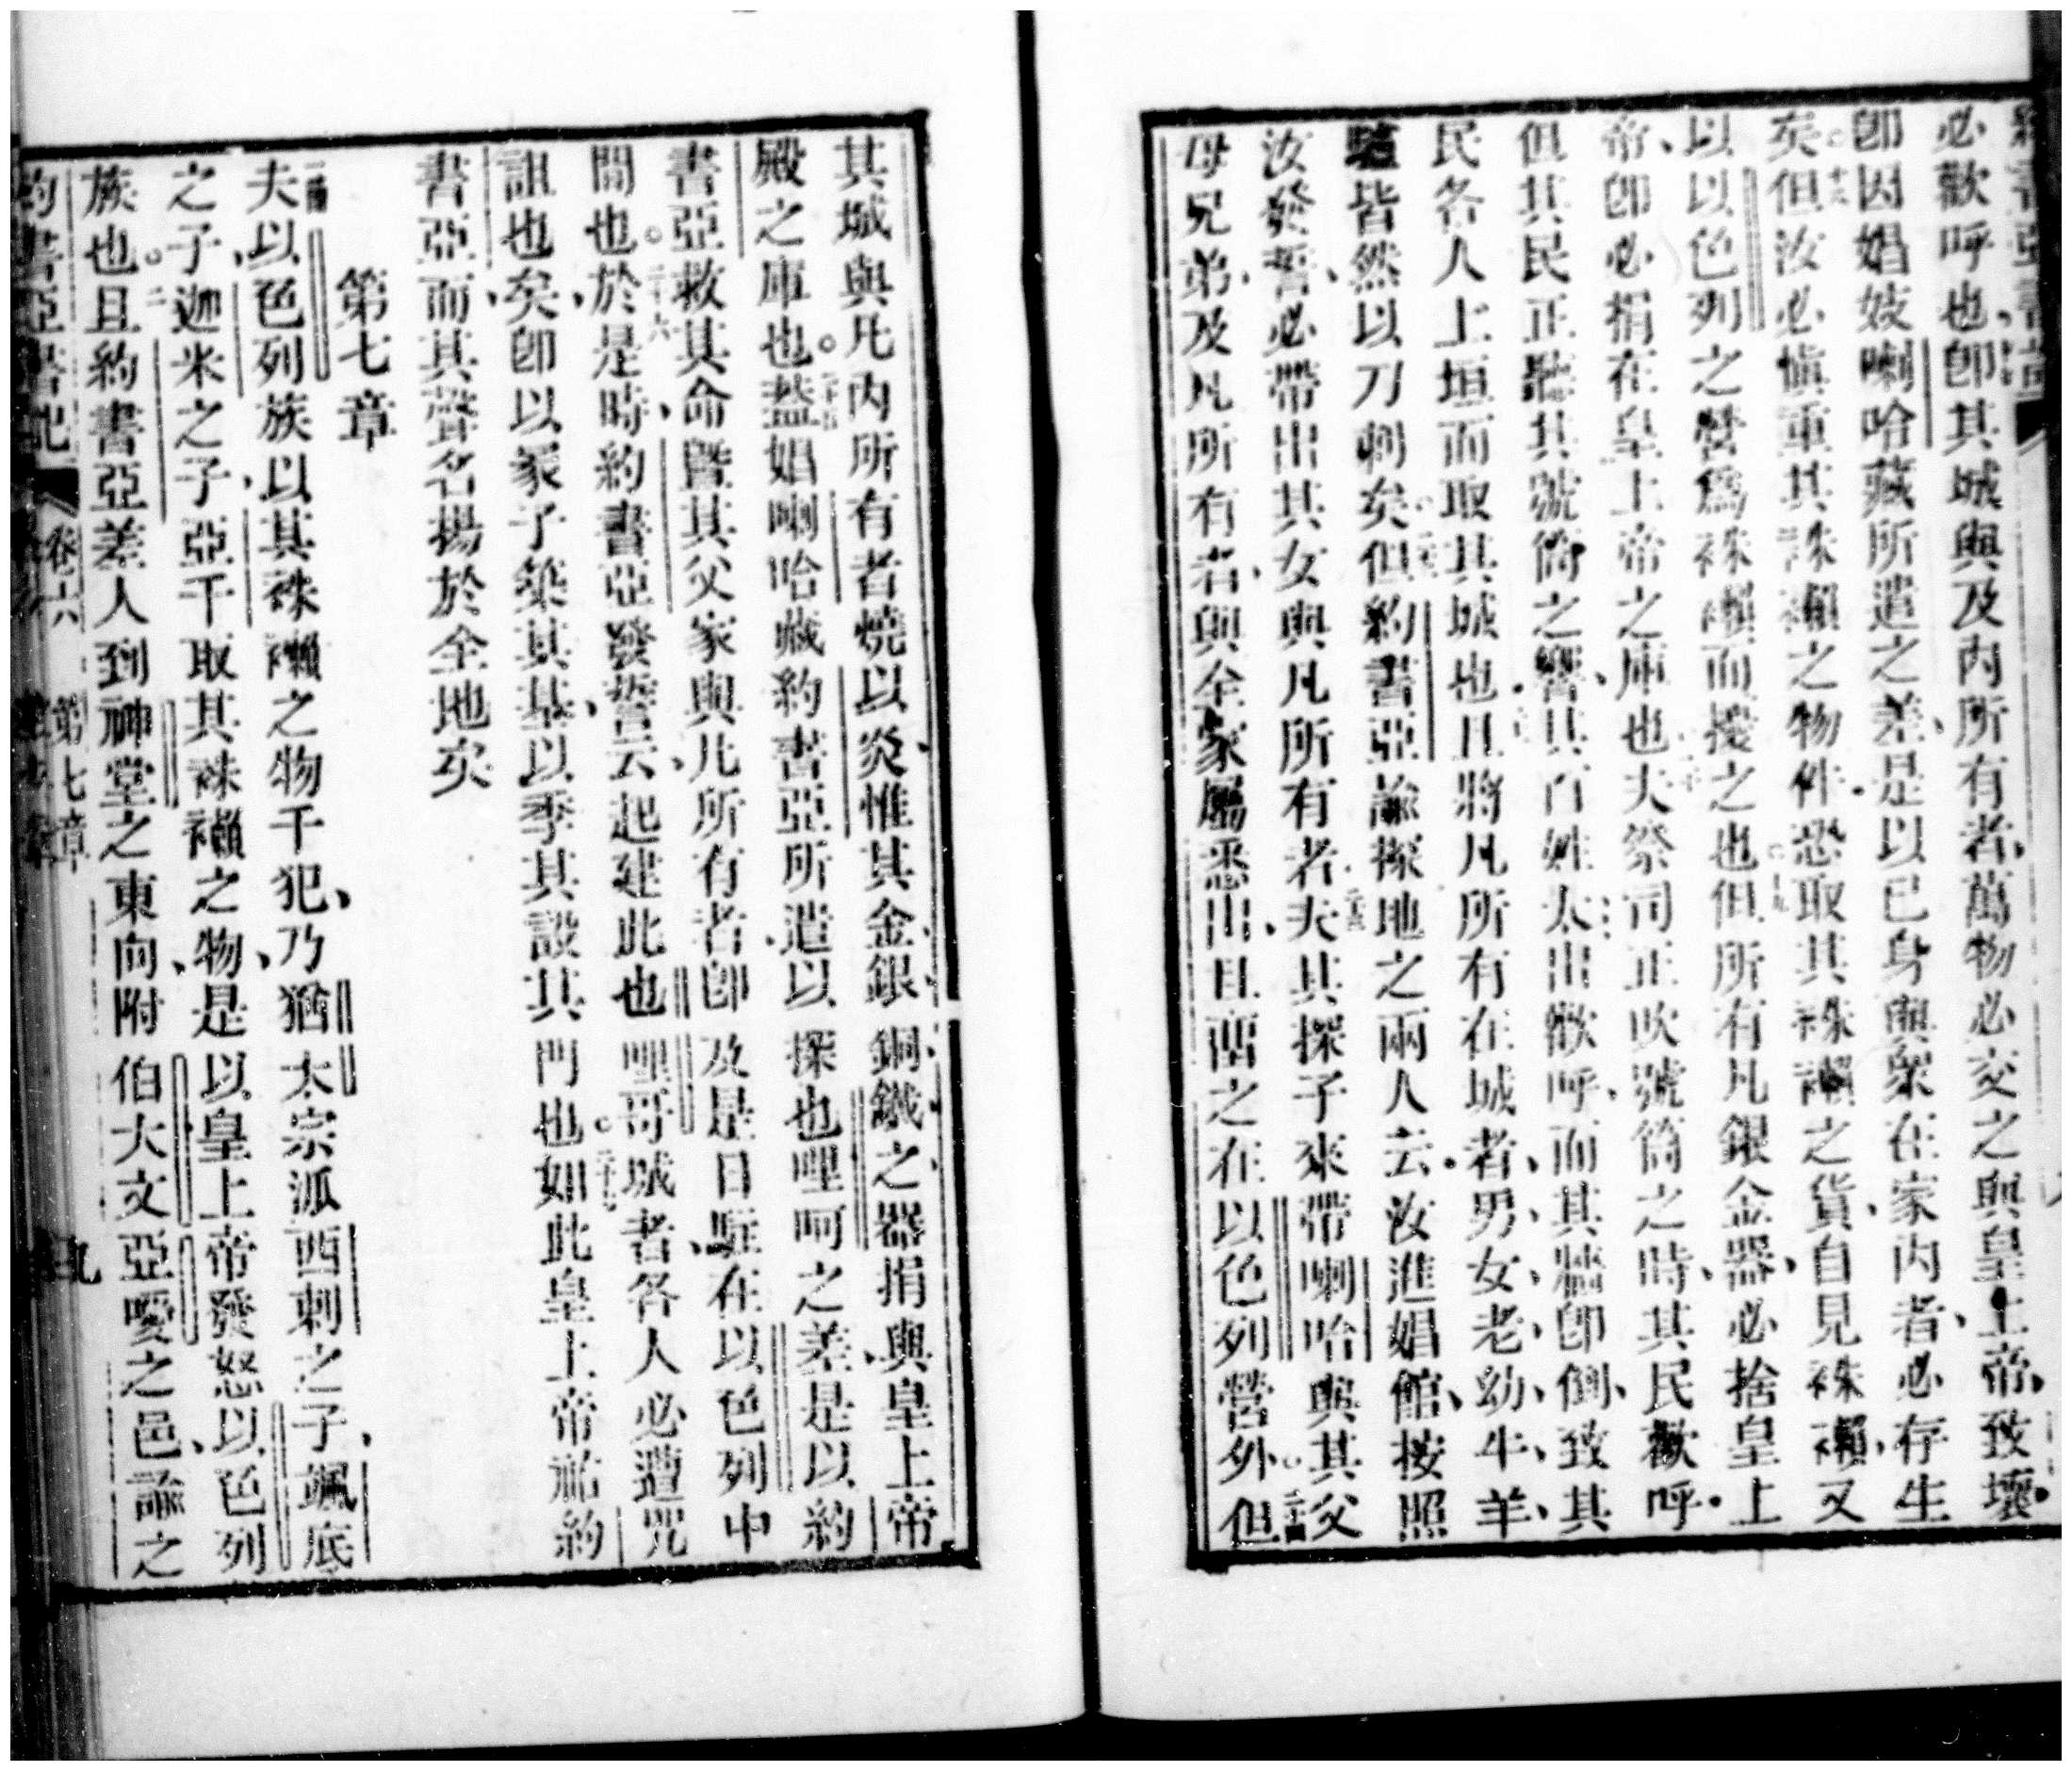 必歡呼也、卽其城與及内所有者、萬物必交之與皇上帝、致壞。
卽因娼妓喇哈藏所遣之差、是以已身與衆在家内者、必存生
矣。但汝必愼重其袾襰之物件、恐取其袾襰之貨、自見袾襰、又
以以色列之營爲袾襰而擾之也。但所有凡銀金器、必捨皇上
帝、卽必捐在皇上帝之庫也。夫祭司正吹號筒之時、其民歡呼。
但其民正聽其號筒之響、其百姓太出歡呼、而其牆卽倒、致其
民各人上垣而取其城也。且將凡所有在城者、男、女、老、幼、牛、羊、
驢皆然以刀刺矣。但約書亞諭探地之兩人云、汝進娼館、按照
汝發誓、必帶出其女與凡所有者。夫其探子來帶喇哈與其父
母兄弟、及凡所有者、與全家屬悉出、且畱之在以色列營外。但
其城與凡内所有者燒以炎、惟其金、銀、銅、鐵、之器、捐與皇上帝
殿之庫也。葢娼喇哈藏約書亞所遣以探也哩呵之差、是以約
書亞救其命、曁其父家與凡所有者、卽及是日駐在以色列中
間也。於是時、約書亞發誓云、起建此也哩哥城者、各人必遭咒
詛也矣、卽以冢子築其基、以季其設其門也。如此皇上帝祐約
書亞、而其聲名揚於全地矣
第七章
夫以色列族以其袾襰之物干犯、乃猶太宗派西剌之子、颯底
之子、迦米之子、亞干取其袾襰之物、是以皇上帝發怒以色列
族也。且約書亞差人到神堂之東向、附伯大文亞噯之邑、諭之
約書亞書記 卷六 第七章 九